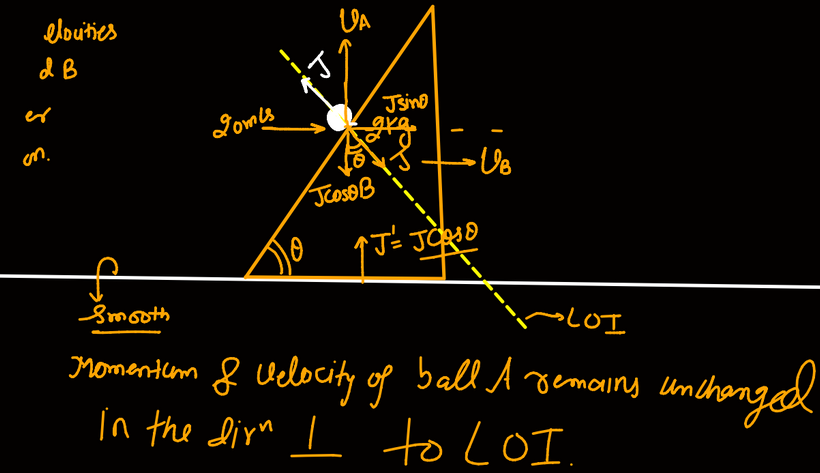 elocities
d B
er
on.
UA
J
20m/s
Jsinθ
θ
J
UB
JcosθB
θ
J' = Jcosθ
Smooth
LOI
Momentum & velocity of ball A remains unchanged
in the dirⁿ ⊥ to LOI.